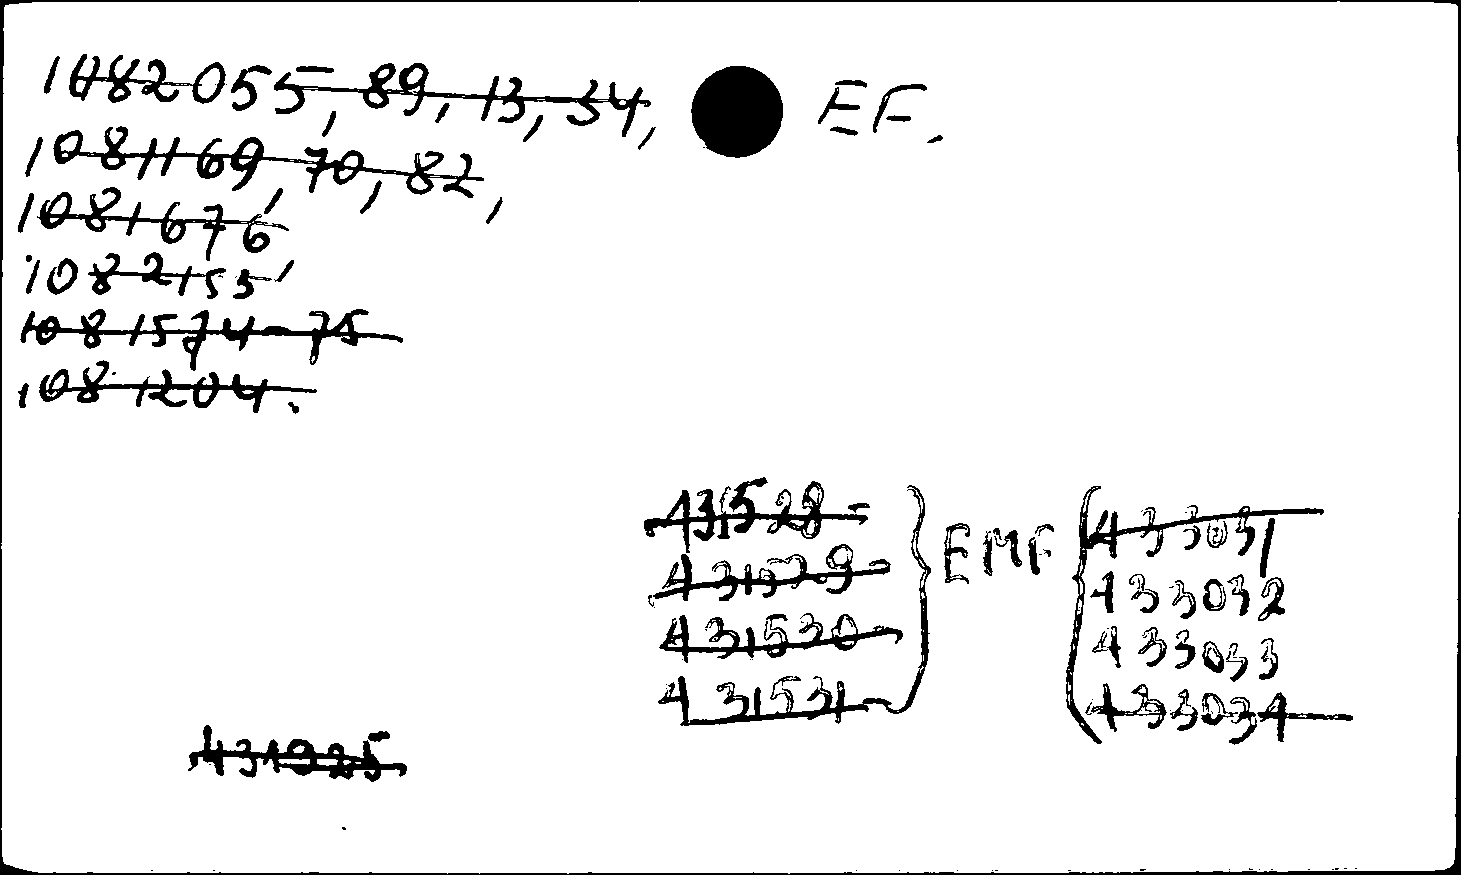 1082055, 89, 13, 34, EF.
1081169, 70, 82,
1081676,
1082155,
1081574-75
1081204.
431528-
431529-
431530-
431531-
EMF
433031
433032
433033
433034
431925